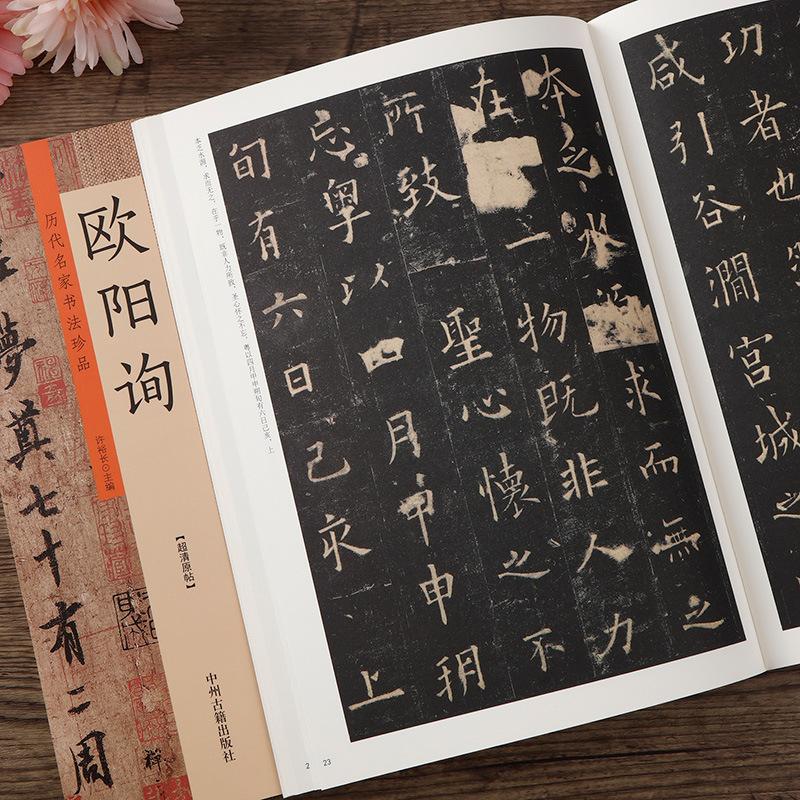 欧阳询
历代名家书法珍品
许裕长⊙主编
【超清原帖】
中州古籍出版社
夢奠七十有二周
功者也
咸引谷澗宮城
本乏水源求而無之
在一物既非人力
所致聖心懷之不
忘粵以四月甲申朔
旬有六日己亥上
本乏水源,求而无之,在乎一物,既非人力所致,圣心怀之不忘。粤以四月甲申朔旬有六日己亥,上
2 23